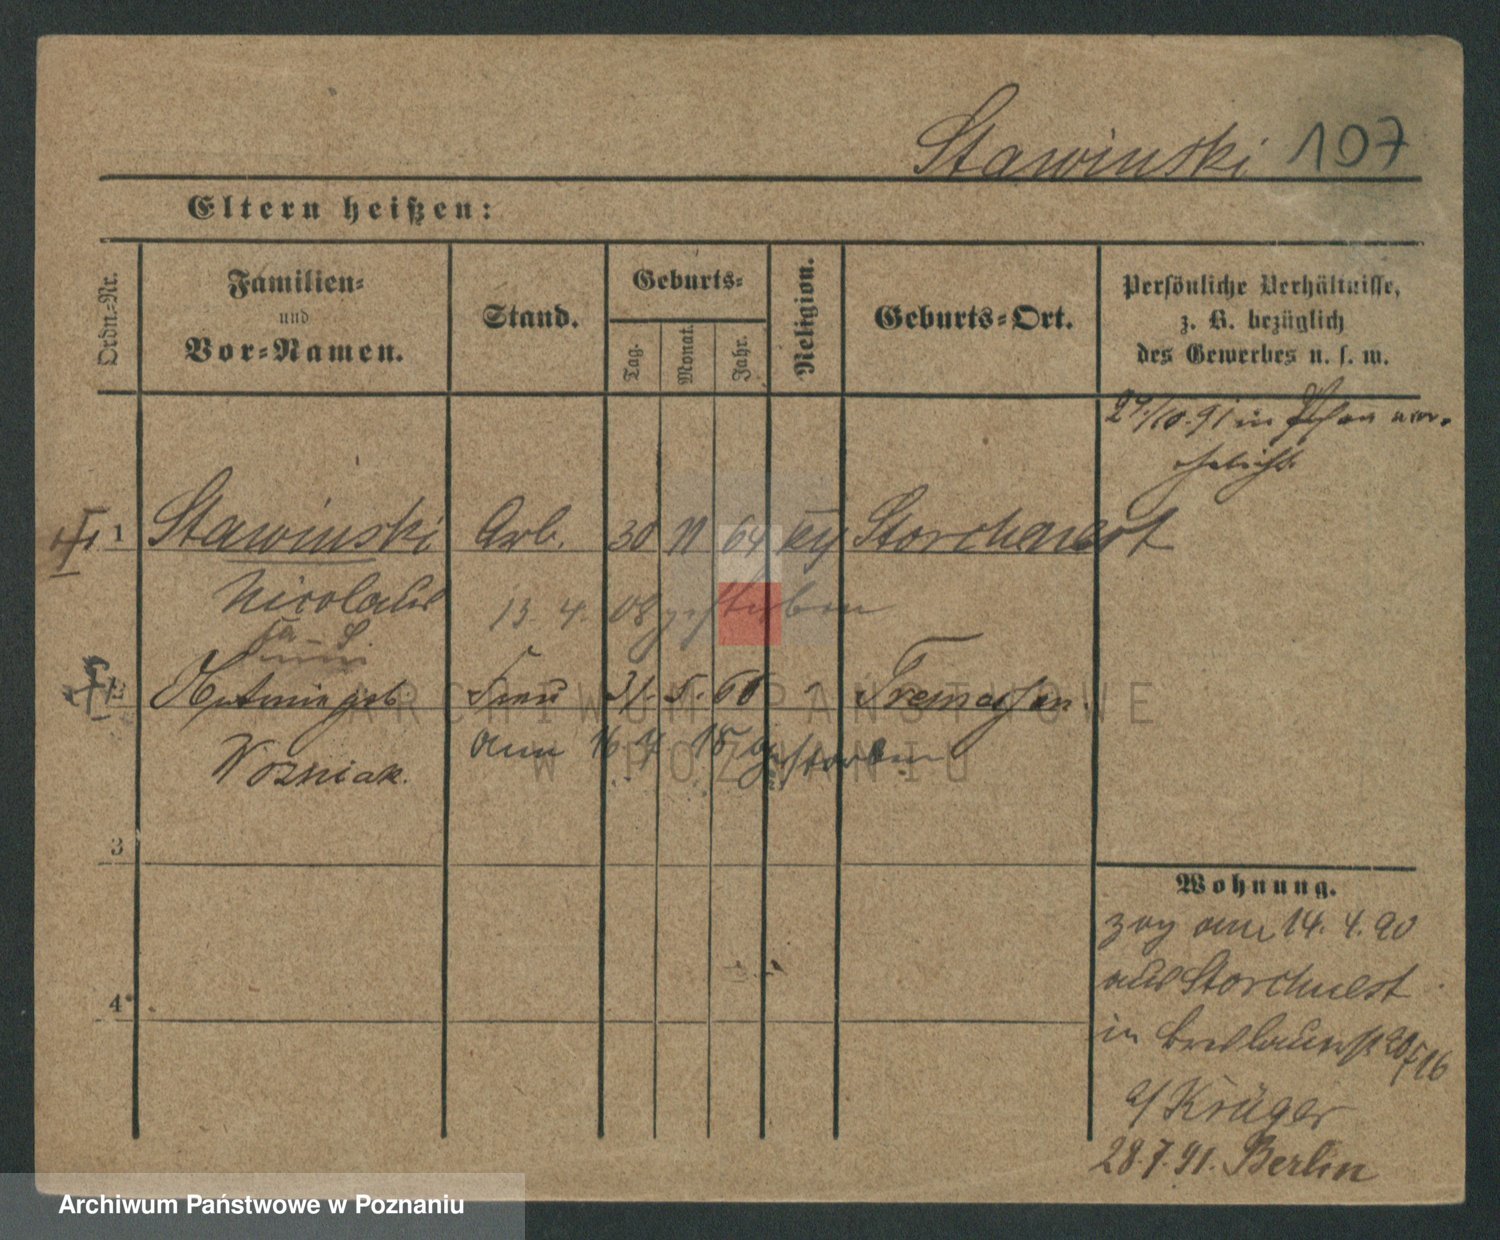 Stawinski 107
Eltern heißen:
Ordn.-Nr.
Familien-
und
Vor-Namen.
Stand.
Geburts-
Tag.
Monat.
Jahr.
Religion.
Geburts-Ort.
Persönliche Verhältnisse,
z. B. bezüglich
des Gewerbes u. s. w.
10.91 in Posen ver-
ehelicht
1 Stawinski Arb. 30 11 64 Storchnest
Nicolaus 13. 4. 08 gestorben
2 geb. Frau 31. 5. Tremessen.
Wozniak. am 16 4 18 gestorben
3
4
Wohnung.
zog am 14. 4. 90
aus Storchnest
in Breslauerst
b/ Krüger
28.7.91. Berlin
ARCHIWUM PAŃSTWOWE
W POZNANIU
Archiwum Państwowe w Poznaniu